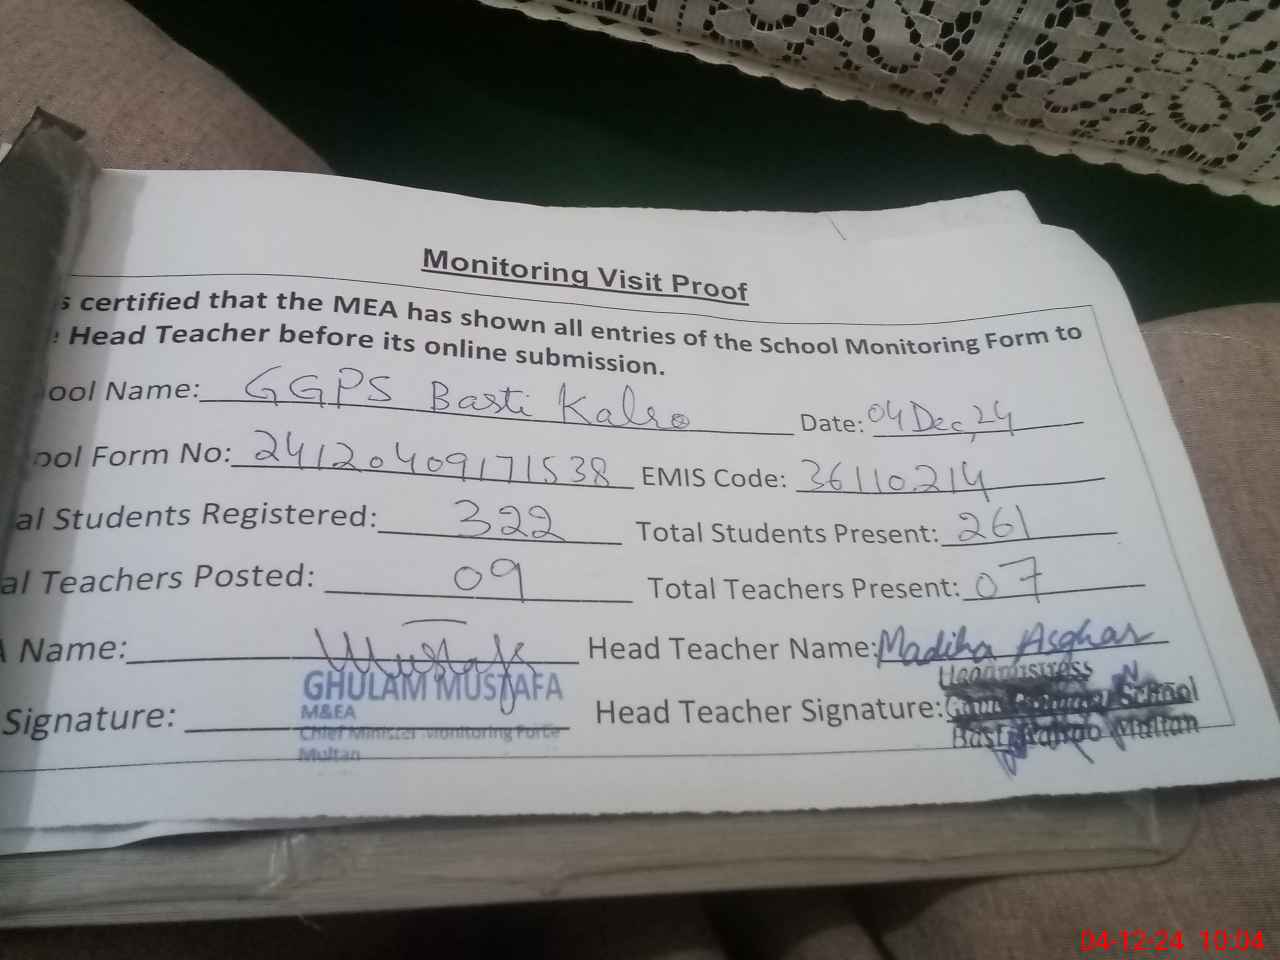 Monitoring Visit Proof
s certified that the MEA has shown all entries of the School Monitoring Form to
Head Teacher before its online submission.
ool Name: GGPS Basti Kalro Date: 04 Dec, 24
ool Form No: 24120409171538 EMIS Code: 36110214
al Students Registered: 322 Total Students Present: 261
al Teachers Posted: 09 Total Teachers Present: 07
Name: Mustafa Head Teacher Name: Madiha Asghar
GHULAM MUSTAFA Headmistress
Signature: M&EA Head Teacher Signature: School
Chief Minister Monitoring Force
Multan
Basti Multan
04-12-24 10:04